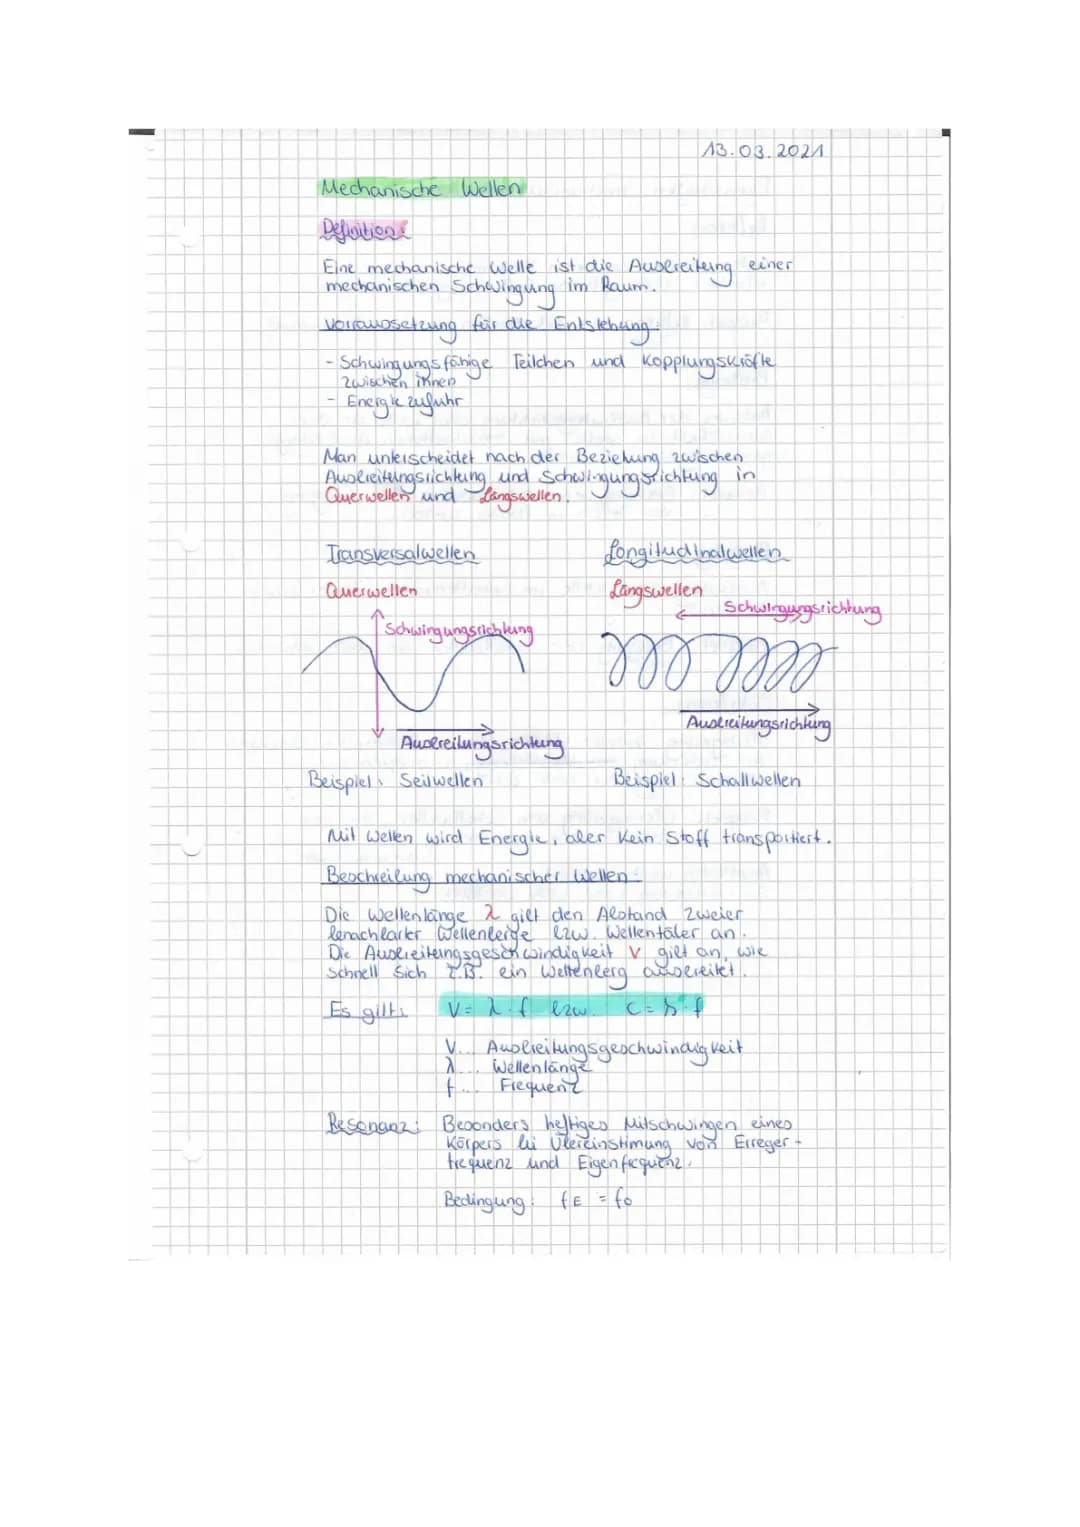 13.03.2021
Mechanische Wellen
Definition:
Eine mechanische Welle ist die Ausbreitung einer
mechanischen Schwingung im Raum.
Vorraussetzung für die Entstehung:
- Schwingungsfähige Teilchen und Kopplungskräfte
zwischen ihnen
- Energiezufuhr
Man unterscheidet nach der Beziehung zwischen
Ausbreitungsrichtung und Schwingungsrichtung in
Querwellen und Längswellen.
Transversalwellen Longitudinalwellen
Querwellen Längswellen
Schwingungsrichtung
Schwingungsrichtung
Ausbreitungsrichtung
Ausbreitungsrichtung
Beispiel: Seilwellen Beispiel: Schallwellen
Mit Wellen wird Energie, aber kein Stoff transportiert.
Beschreibung mechanischer Wellen:
Die Wellenlänge λ gibt den Abstand zweier
benachbarter Wellenberge bzw. Wellentäler an.
Die Ausbreitungsgeschwindigkeit v gibt an, wie
schnell sich z.B. ein Wellenberg ausbreitet.
Es gilt: v = λ · f bzw. c = λ · f
v... Ausbreitungsgeschwindigkeit
λ... Wellenlänge
f... Frequenz
Resonanz: Besonders heftiges Mitschwingen eines
Körpers bei Übereinstimung von Erreger-
frequenz und Eigenfrequenz.
Bedingung: fE = f0